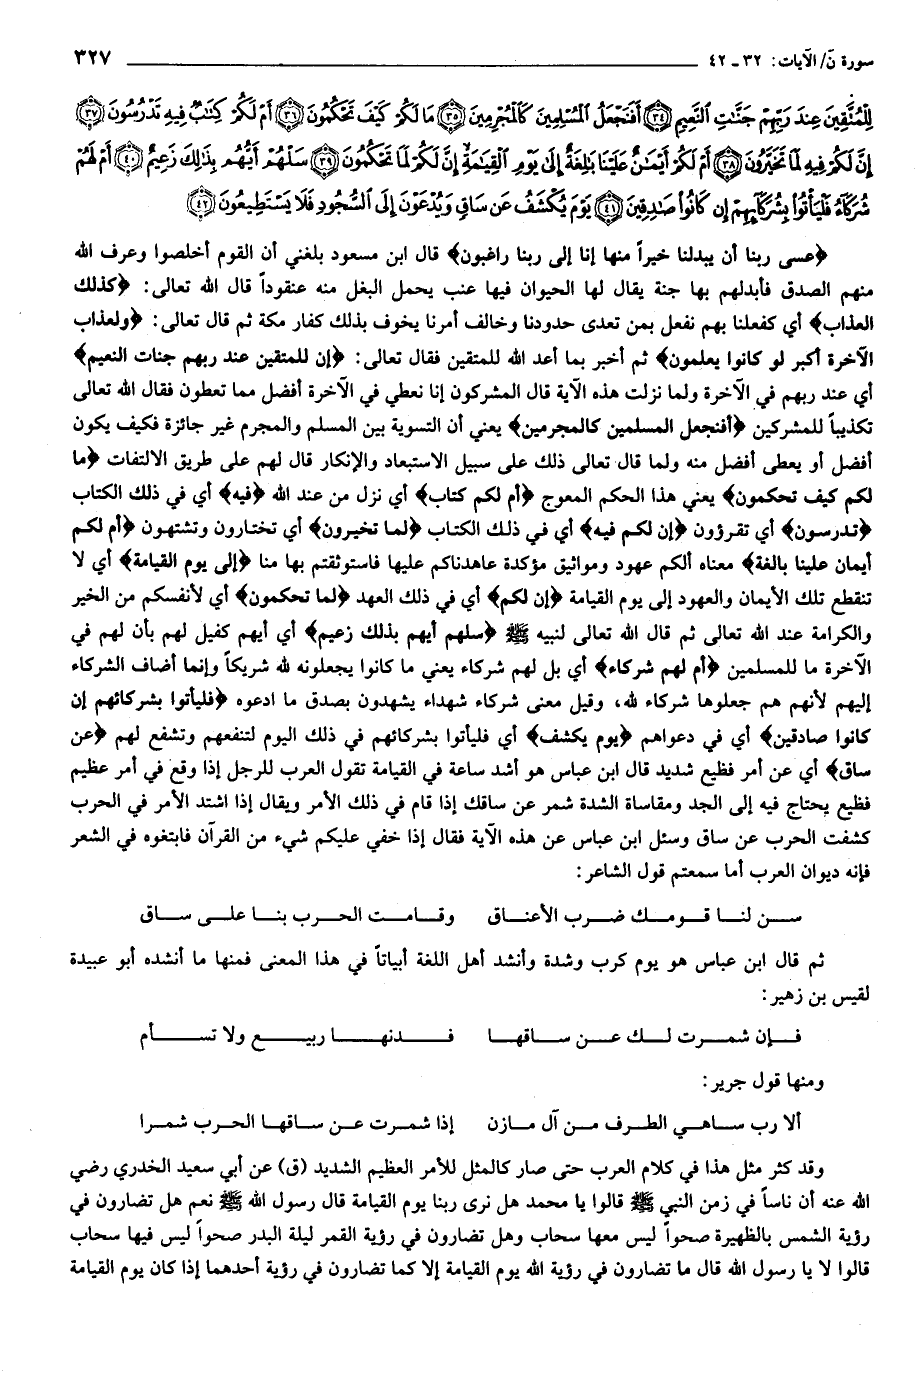 سورة نۤ/ الآيات: ٣٢ ـ ٤٢ ٣٢٧
لِلْمُتَّقِينَ عِندَ رَبِّهِمْ جَنَّٰتِ ٱلنَّعِيمِ ﴿٣٤﴾ أَفَنَجْعَلُ ٱلْمُسْلِمِينَ كَٱلْمُجْرِمِينَ ﴿٣٥﴾ مَا لَكُمْ كَيْفَ تَحْكُمُونَ ﴿٣٦﴾ أَمْ لَكُمْ كِتَٰبٌ فِيهِ تَدْرُسُونَ ﴿٣٧﴾
إِنَّ لَكُمْ فِيهِ لَمَا تَخَيَّرُونَ ﴿٣٨﴾ أَمْ لَكُمْ أَيْمَٰنٌ عَلَيْنَا بَٰلِغَةٌ إِلَىٰ يَوْمِ ٱلْقِيَٰمَةِ إِنَّ لَكُمْ لَمَا تَحْكُمُونَ ﴿٣٩﴾ سَلْهُمْ أَيُّهُم بِذَٰلِكَ زَعِيمٌ ﴿٤٠﴾ أَمْ لَهُمْ
شُرَكَآءُ فَلْيَأْتُوا۟ بِشُرَكَآئِهِمْ إِن كَانُوا۟ صَٰدِقِينَ ﴿٤١﴾ يَوْمَ يُكْشَفُ عَن سَاقٍ وَيُدْعَوْنَ إِلَى ٱلسُّجُودِ فَلَا يَسْتَطِيعُونَ ﴿٤٢﴾
﴿عسى ربنا أن يبدلنا خيراً منها إنا إلى ربنا راغبون﴾ قال ابن مسعود بلغني أن القوم أخلصوا وعرف الله
منهم الصدق فأبدلهم بها جنة يقال لها الحيوان فيها عنب يحمل البغل منه عنقوداً قال الله تعالى: ﴿كذلك
العذاب﴾ أي كفعلنا بهم نفعل بمن تعدى حدودنا وخالف أمرنا يخوف بذلك كفار مكة ثم قال تعالى: ﴿ولعذاب
الآخرة أكبر لو كانوا يعلمون﴾ ثم أخبر بما أعد الله للمتقين فقال تعالى: ﴿إن للمتقين عند ربهم جنات النعيم﴾
أي عند ربهم في الآخرة ولما نزلت هذه الآية قال المشركون إنا نعطي في الآخرة أفضل مما تعطون فقال الله تعالى
تكذيباً للمشركين ﴿أفنجعل المسلمين كالمجرمين﴾ يعني أن التسوية بين المسلم والمجرم غير جائزة فكيف يكون
أفضل أو يعطى أفضل منه ولما قال تعالى ذلك على سبيل الاستبعاد والإنكار قال لهم على طريق الالتفات ﴿ما
لكم كيف تحكمون﴾ يعني هذا الحكم المعوج ﴿أم لكم كتاب﴾ أي نزل من عند الله ﴿فيه﴾ أي في ذلك الكتاب
﴿تدرسون﴾ أي تقرؤون ﴿إن لكم فيه﴾ أي في ذلك الكتاب ﴿لما تخيرون﴾ أي تختارون وتشتهون ﴿أم لكم
أيمان علينا بالغة﴾ معناه ألكم عهود ومواثيق مؤكدة عاهدناكم عليها فاستوثقتم بها منا ﴿إلى يوم القيامة﴾ أي لا
تنقطع تلك الأيمان والعهود إلى يوم القيامة ﴿إن لكم﴾ أي في ذلك العهد ﴿لما تحكمون﴾ أي لأنفسكم من الخير
والكرامة عند الله تعالى ثم قال الله تعالى لنبيه ﷺ ﴿سلهم أيهم بذلك زعيم﴾ أي أيهم كفيل لهم بأن لهم في
الآخرة ما للمسلمين ﴿أم لهم شركاء﴾ أي بل لهم شركاء يعني ما كانوا يجعلونه لله شريكاً وإنما أضاف الشركاء
إليهم لأنهم هم جعلوها شركاء لله، وقيل معنى شركاء شهداء يشهدون بصدق ما ادعوه ﴿فليأتوا بشركائهم إن
كانوا صادقين﴾ أي في دعواهم ﴿يوم يكشف﴾ أي فليأتوا بشركائهم في ذلك اليوم لتنفعهم وتشفع لهم ﴿عن
ساق﴾ أي عن أمر فظيع شديد قال ابن عباس هو أشد ساعة في القيامة تقول العرب للرجل إذا وقع في أمر عظيم
فظيع يحتاج فيه إلى الجد ومقاساة الشدة شمر عن ساقك إذا قام في ذلك الأمر ويقال إذا اشتد الأمر في الحرب
كشفت الحرب عن ساق وسئل ابن عباس عن هذه الآية فقال إذا خفي عليكم شيء من القرآن فابتغوه في الشعر
فإنه ديوان العرب أما سمعتم قول الشاعر:
ســن لنــا قــومــك ضــرب الأعنــاق وقــامــت الحــرب بنــا علــى ســاق
ثم قال ابن عباس هو يوم كرب وشدة وأنشد أهل اللغة أبياتاً في هذا المعنى فمنها ما أنشده أبو عبيدة
لقيس بن زهير:
فــإن شمــرت لــك عــن ســاقهــا فــدنهــا ربيــع ولا تســأم
ومنها قول جرير:
ألا رب ســاهــي الطــرف مــن آل مــازن إذا شمــرت عــن ســاقهــا الحــرب شمــرا
وقد كثر مثل هذا في كلام العرب حتى صار كالمثل للأمر العظيم الشديد (ق) عن أبي سعيد الخدري رضي
الله عنه أن ناساً في زمن النبي ﷺ قالوا يا محمد هل نرى ربنا يوم القيامة قال رسول الله ﷺ نعم هل تضارون في
رؤية الشمس بالظهيرة صحواً ليس معها سحاب وهل تضارون في رؤية القمر ليلة البدر صحواً ليس فيها سحاب
قالوا لا يا رسول الله قال ما تضارون في رؤية الله يوم القيامة إلا كما تضارون في رؤية أحدهما إذا كان يوم القيامة